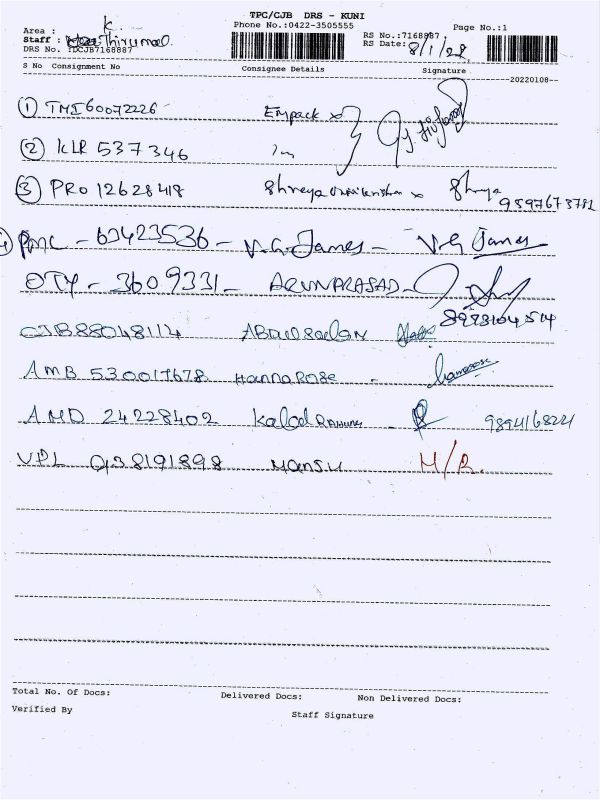 TPC/CJB DRS - KUNI
Phone No.:0422-3505555
Page No.:1
Area : K.
RS No.:7168887
Staff : Thirumal.
RS Date: 8/1/22
DRS No. TDCJB7168887
S No Consignment No Consignee Details Signature
--20220108--
① TMI60072226 Empack
② KLR 537346
③ PRO 12628418 Shreya Shreya
9597673782
PMC - 63423536 - V.G. James - V.G James
OTY - 3609331 - ARUNPRASAD -
CJB88048114
AMB 530017678 Hannarose -
AMD 24228402 - 9894168221
VPL Q38191898 M/R.
Total No. Of Docs: Delivered Docs: Non Delivered Docs:
Verified By Staff Signature